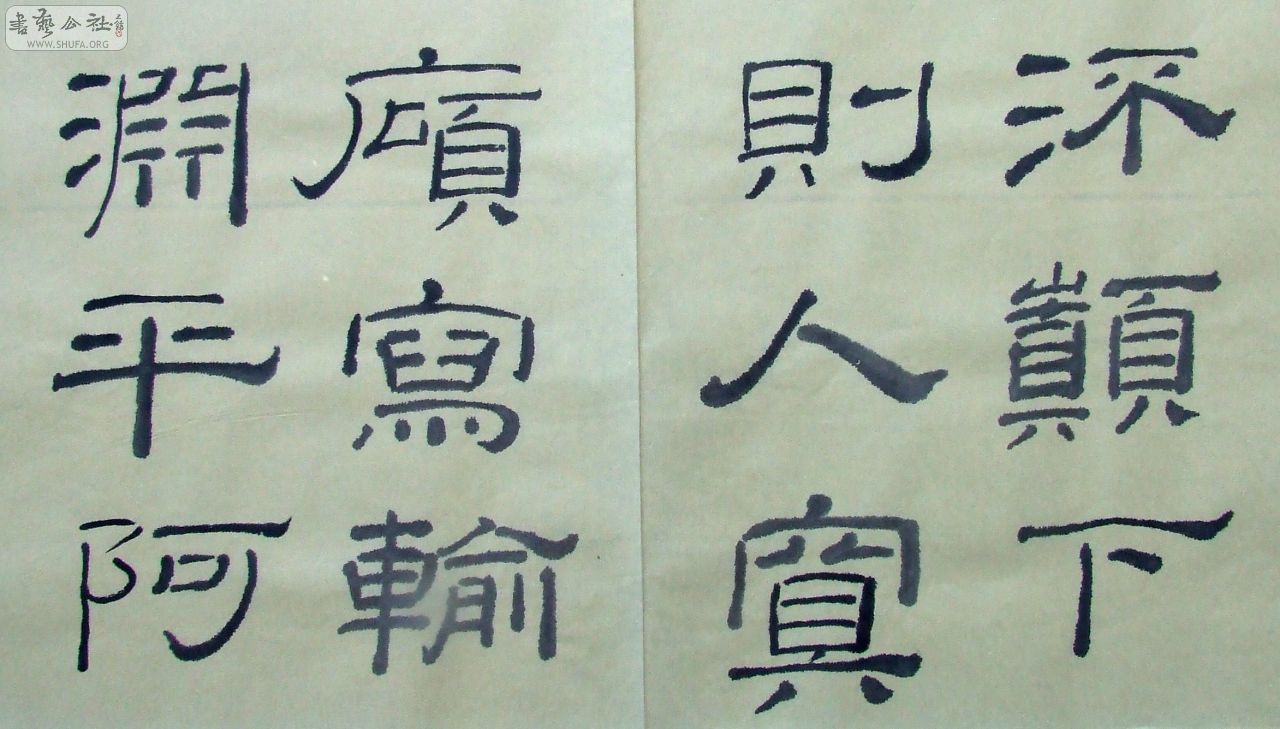 書藝公社
WWW.SHUFA.ORG
㳅顛下
則人寘
廎寫輸
淵平阿